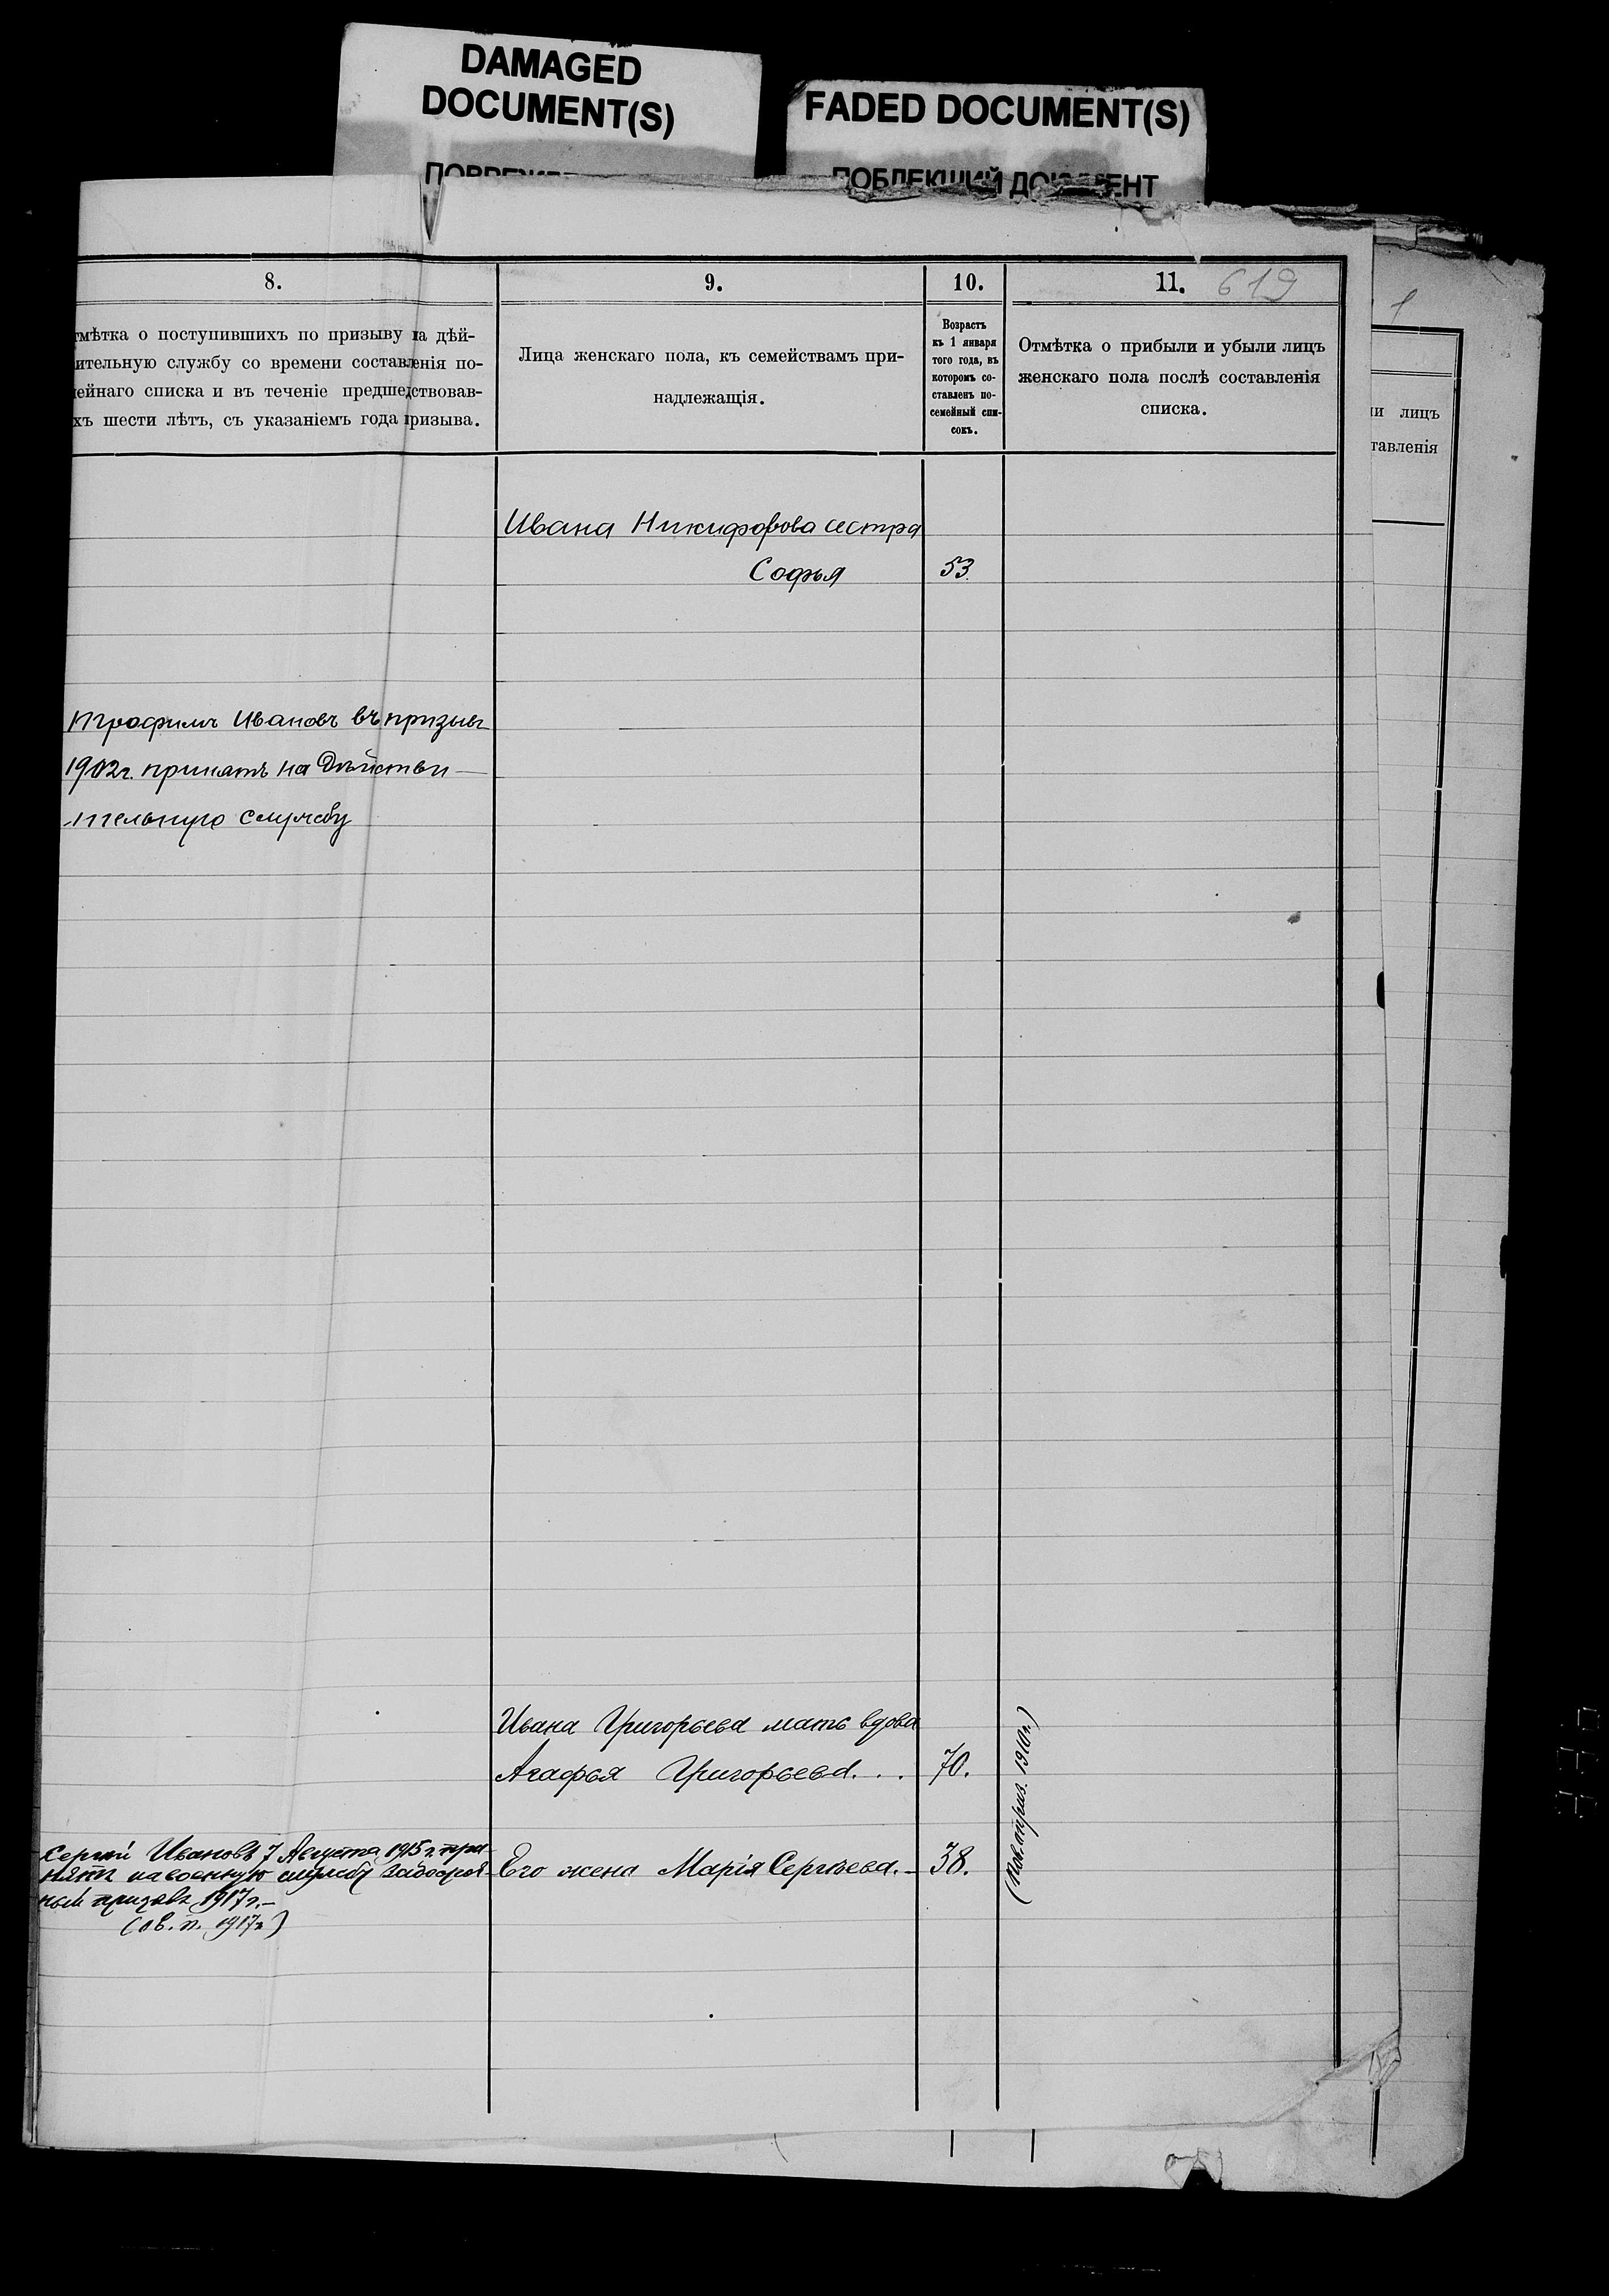 DAMAGED
DOCUMENT(S)
FADED DOCUMENT(S)
ПОБЛЕКШИЙ ДОКУМЕНТ
8.
9.
10.
11. 619
1
тмѣтка о поступившихъ по призыву на дѣй-
ительную службу со времени составленія по-
ейнаго списка и въ теченіе предшедствовав-
хъ шести лѣтъ, съ указаніемъ года призыва.
Лица женскаго пола, къ семействамъ при-
надлежащія.
Возрастъ
къ 1 января
того года, въ
которомъ со-
ставленъ по-
семейный спи-
сокъ.
Отмѣтка о прибыли и убыли лицъ
женскаго пола послѣ составленія
списка.
и лицъ
тавленія
Ивана Никифорова сестра
Софья 53.
Трофимъ Ивановъ въ призывъ
1902г. принятъ на Дѣйстви-
-тельную службу
Ивана Григорьева мать вдова
Агафья Григорьева... 70.
Сергѣй Ивановъ 7 Августа 1915 г. при-
нятъ на военную службу
ный призывъ 1917 г.-
(ов. п. 1917 г)
Его жена Марія Сергѣева.- 38.
1910 г.)